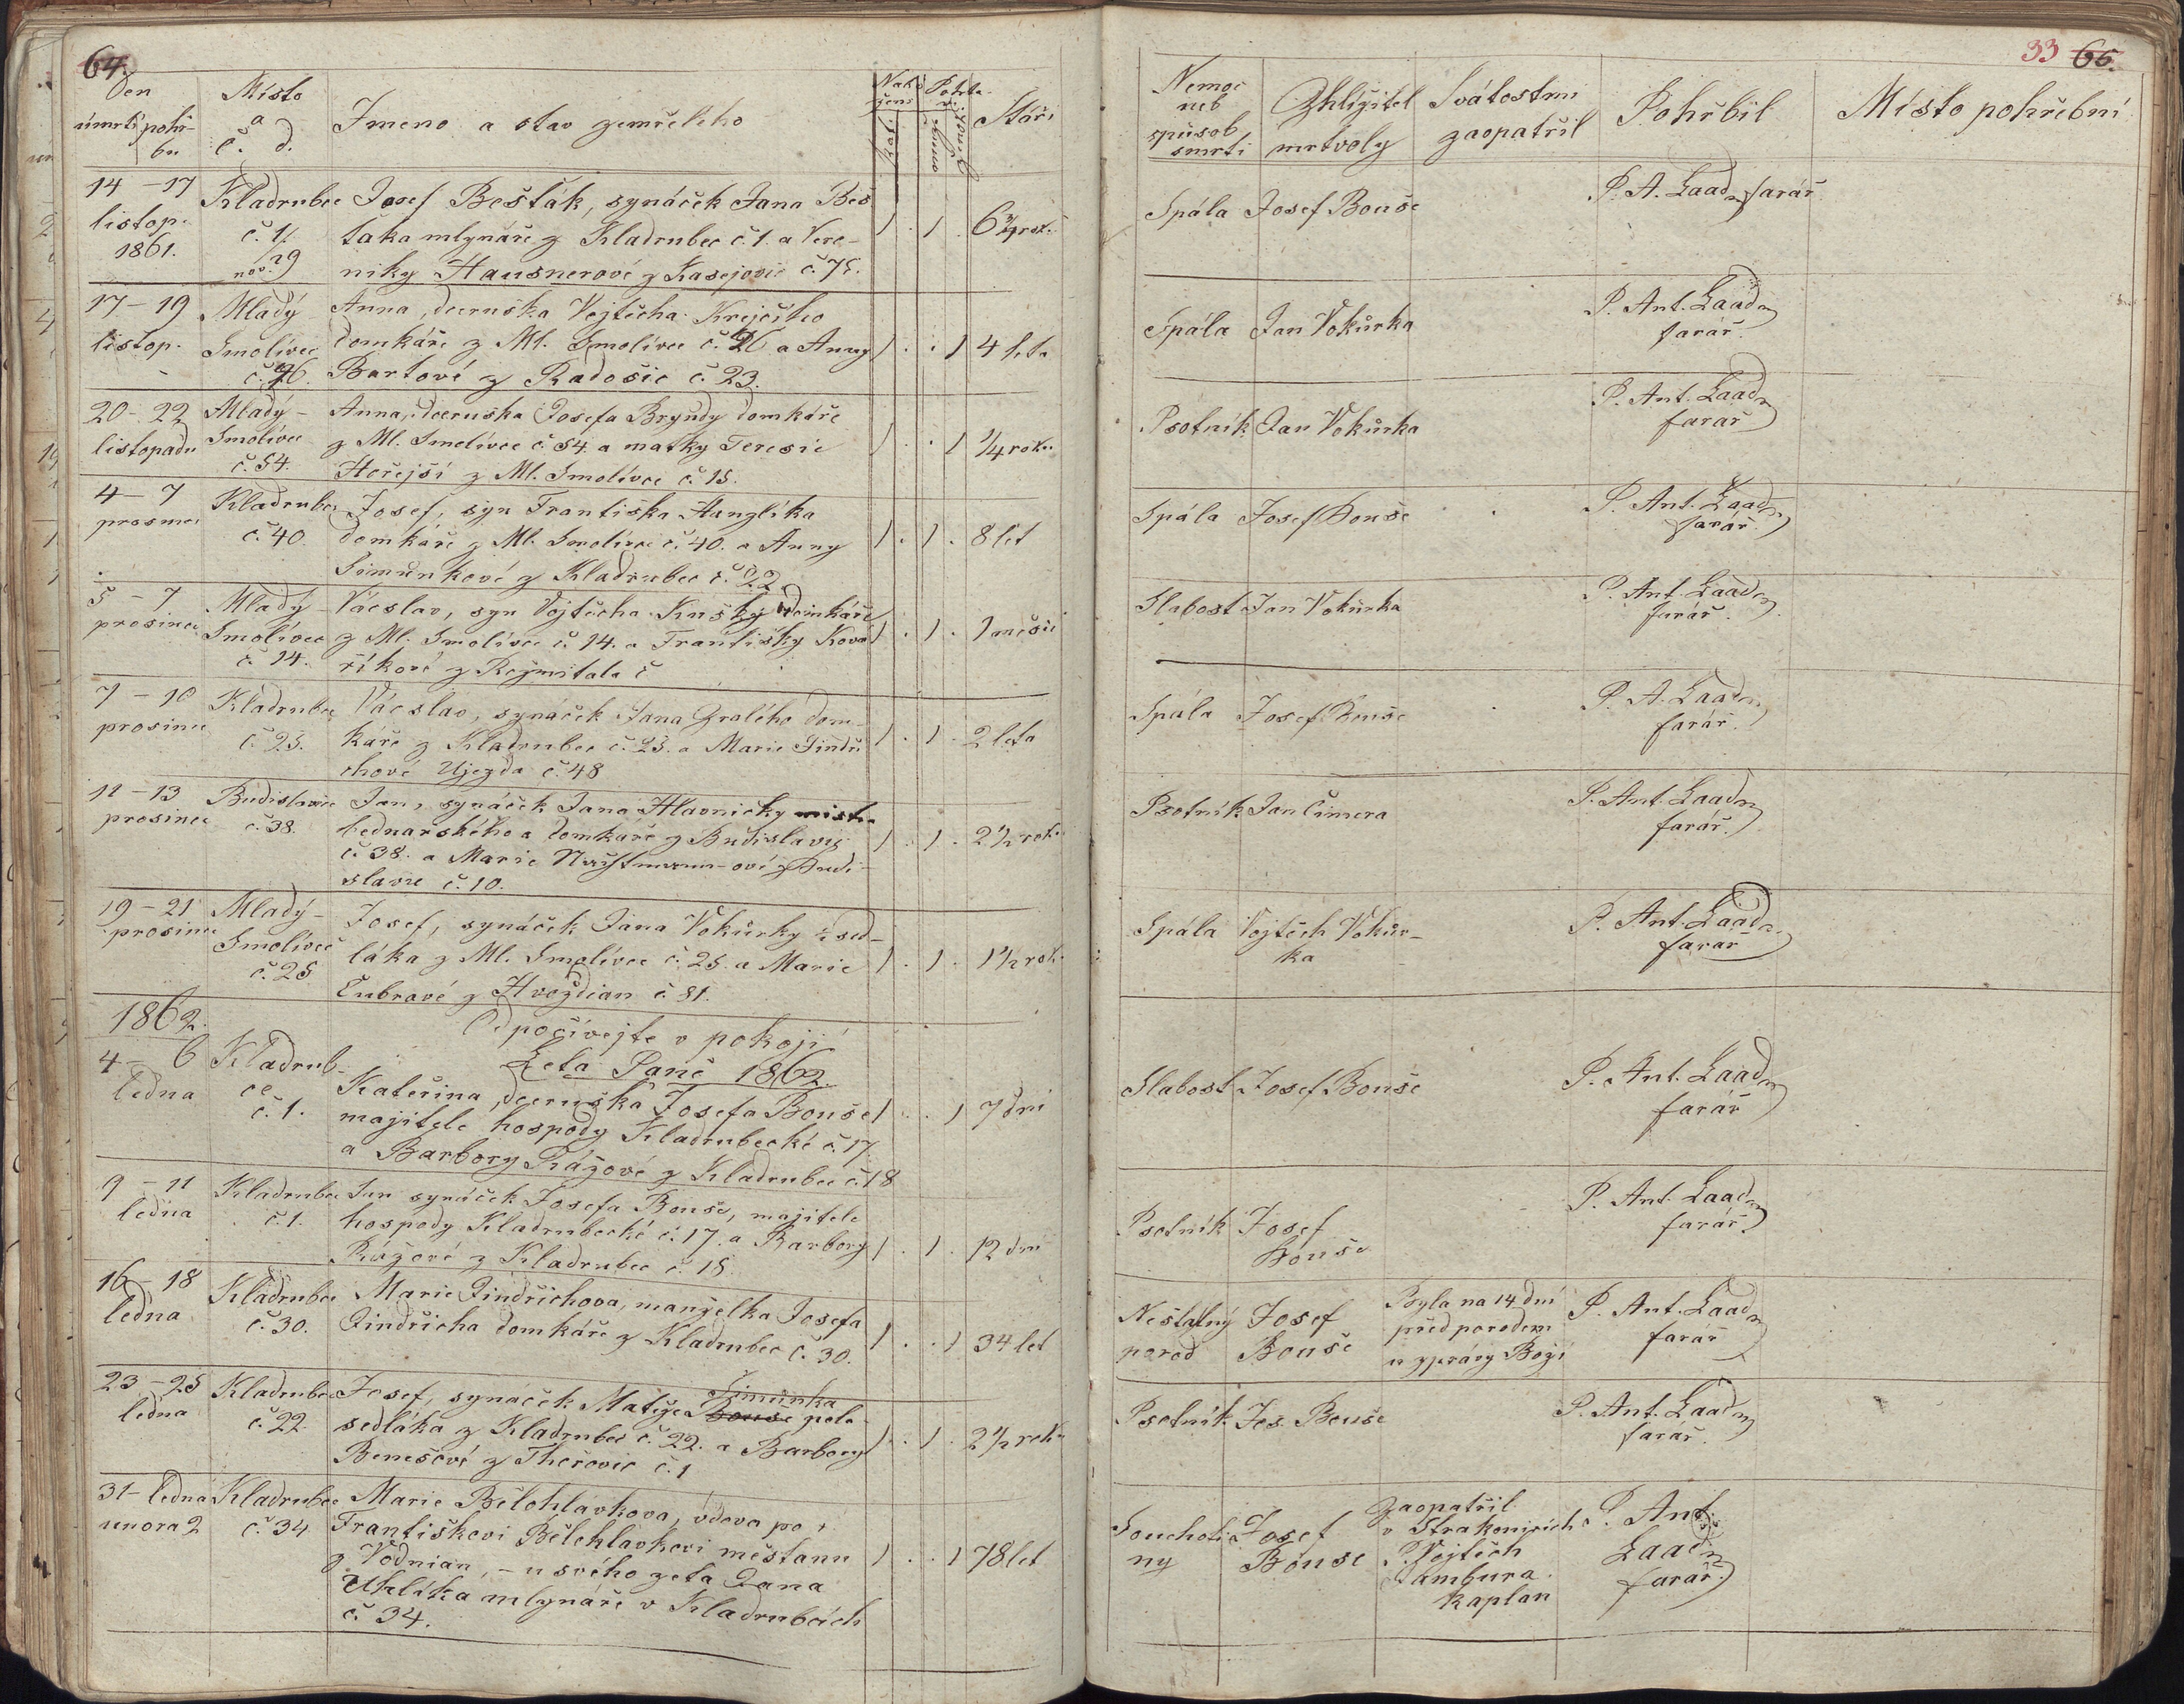 64.
Den
úmrtí pohř-
bu
Místo
a
č. d.
Jmeno a stav zemřelého
Nábo
žens
kat.
Pohla
ví
Stáří
14 - 17
listop.
1861.
Kladrubce
č. 1/
nov. 29
Josef Bešták, synáček Jana Beš
táka mlynáře z Kladrubec č. 1. a Vero-
niky Hausnerové z Kasejovic č. 75.
1 . 1 . 6 3/4 rok.
17 - 19
listop.
Mladý
Smolivec
Anna, dceruška Vojtěcha Krejčího
domkáře z Ml. Smolivce a Anny
Bartové z Radošic č. 23.
1 . . 1 4 leta
20 - 22
listopadu
Mladý -
Smolivec
č. 54.
Anna, dceruška Josefa Bryndy domkáře
z Ml. Smolivce č. 54. a matky Teresie
Hořejší z Ml. Smolivce č. 15.
1 . . 1 1/4 roku
4 - 7
prosince
Kladrubec
č. 40.
Josef, syn Františka Hanglíka
domkáře z Ml. Smolivce č. 40. a Anny
Šimůnkové z Kladrubec č. 22
1 . 1 . 8 let
5 - 7
prosince
Mladý -
Smolivec
č. 14.
Vácslav, syn Vojtěcha Kušky domkáře
z Ml. Smolivce č. 14. a Františky Kova
říkové z Rožmitala č
1 . 1 . 1 měsíc
7 - 10
prosince
Kladrubec
č. 23.
Vácslav, synáček Jana Zralého dom-
káře z Kladrubec č. 23. a Marie Jindři
chové Ujezda č. 48
1 . 1 . 2 leta
11 - 13
prosince
Budislavice
č. 38.
Jan, synáček Jana Hlavničky mistra
bednarského a domkaře z Budislavic
č. 38. a Marie -ové z Budi-
slavic č. 10.
1 . 1 . 2 1/2 roku
19 - 21
prosince
Mladý -
Smolivec
č. 25.
Josef, synáček Jana Vokůrky 1/2 sed-
láka z Ml. Smolivce č. 25. a Marie
Čubrové z Hvoždian č. 81.
1 . 1 . 1 1/2 rok.
1862.
Odpočívejte v pokoji
Leta Páně 1862.
4 - 6
ledna
Kladrub-
ce
č. 1.
Kateřina, dceruška Josefa Bouše
majitele hospody Kladrubecké č. 17
a Barbory Růžové z Kladrubec č. 18
1 . . 1 7 dní
9 - 11
ledna
Kladrubec
č. 1.
Jan synáček Josefa Bouše, majitele
hospody Kladrubecké č. 17. a Barbory
Růžové z Kladrubec č. 18
1 . 1 . 12 dní
16 - 18
ledna
Kladrubec
č. 30.
Marie Jindřichova, manželka Josefa
Jindřicha domkáře z Kladrubec č. 30.
1 . . 1 34 let
23 - 25
ledna
Kladrubec
č. 22.
Šimůnka
Josef, synáček Matěje Bouše polo-
sedláka z Kladrubec č. 22. a Barbory
Benešové z Thořovic č. 1
1 . 1 . 2 1/2 roku
31 - ledna
unora 2
Kladrubec
č. 34
Marie Bělohlavkova, vdova po
Františkovi Bělohlavkovi měšťanu
z Vodnian, - u svého zeťa Jana
Uhlíka mlynáře v Kladrubcích
č. 34.
1 . . 1 78 let
33 65.
Nemoc
neb
způsob
smrti
Ohližitel
mrtvoly
Svátostmi
zaopatřil
Pohřbil
Místo pohřební
Spála Josef Bouše
P. A. Laad farář.
Spála Jan Vokůrka
P. Ant. Laad
farář.
Psotník Jan Vokůrka
P. Ant. Laad
farář
Spála Josef Bouše
P. Ant. Laad
farář.
Slabost Jan Vokůrka
P. Ant. Laad
farář.
Spála Josef Bouše
P. A. Laad
farář.
Psotník Jan Čimera
P. Ant. Laad
farář.
Spála Vojtěch Vokůr-
ka
P. Ant. Laad
farář
Slabost Josef Bouše
P. Ant. Laad
farář
Psotník Josef
Bouše
P. Ant. Laad
farář.
Nešťatný
porod
Josef
Bouše
Byla na 14 dní
před porodem
u zprávy Boží
P. Ant. Laad
farář
Psotník Jos. Bouše
P. Ant. Laad
farář.
Souchoti
ny
Josef
Bouše
Zaopatřil
v Strakonicích
P. Vojtěch
Jambura
kaplan
P. Ant.
Laad
farář.